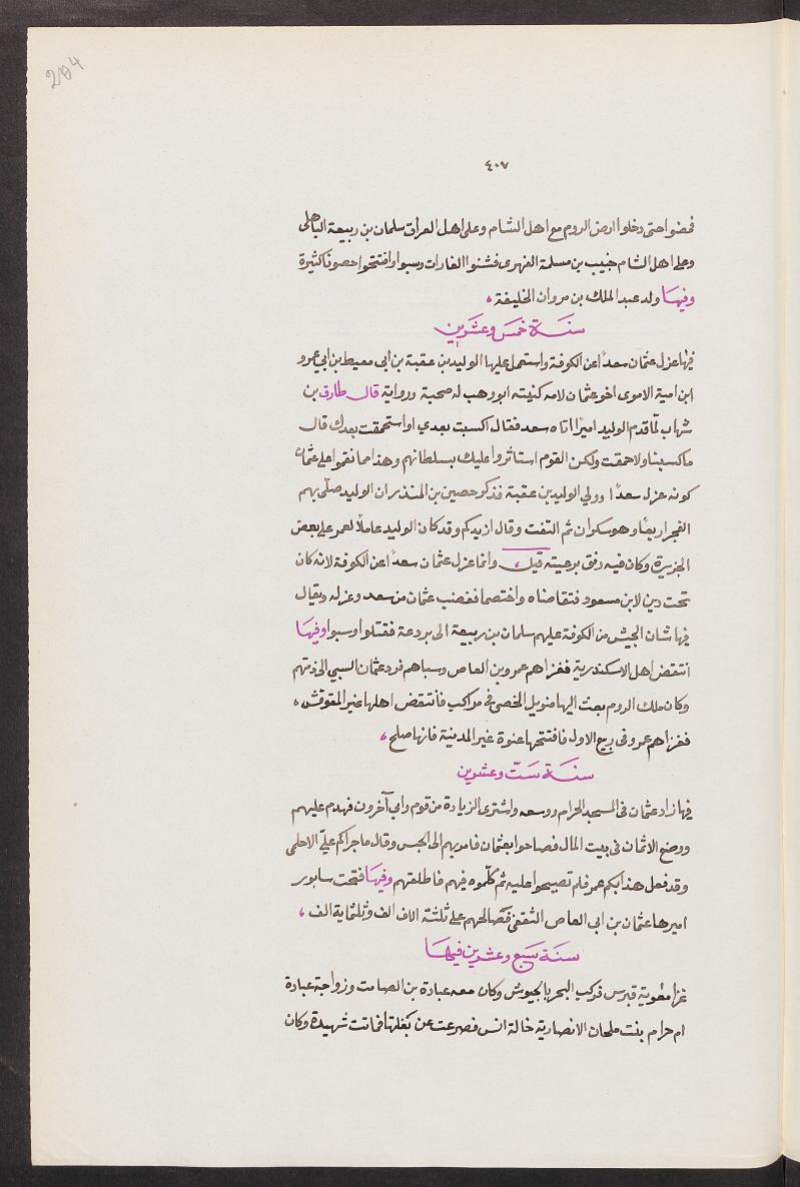 204
٤٠٧
فمضوا حتى دخلوا ارض الروم مع اهل الشام وعلى اهل العراق سلمان بن ربيعة الباهلى
وعلى اهل الشام حبيب بن مسلمة الفهرى فشنوا الغارات وسبوا وافتتحوا حصونا كثيرة
وفيها ولد عبد الملك بن مروان الخليفة
سنة خمس وعشرين
فيها عزل عثمان سعدًا عن الكوفة واستعمل عليها الوليد بن عقبة بن ابى معيط بن ابى عمرو
ابن امية الاموى اخو عثمان لامه كنيته ابو وهب له صحبة ورواية قال طارق بن
شهاب لما قدم الوليد اميرًا اتاه سعد فقال اكسبت بعدي او استحمقت بعدك قال
ما كسبنا ولا حمقت ولكن القوم استاثروا عليك بسلطانهم وهذا مما نقموا على عثمان
كونه عزل سعدًا وولي الوليد بن عقبة فذكر حصين بن المنذر ان الوليد صلّى بهم
الفجر اربعًا وهو سكران ثم التفت وقال ازيدكم وقد كان الوليد عاملًا لعمر على بعض
الجزيرة وكان فيه رفق برعيته قيل وانما عزل عثمان سعدًا عن الكوفة لانه كان
تحت دين لابن مسعود فتقاضاه واختصما فغضب عثمان من سعد وعزله ويقال
فيها سار الجيش من الكوفة عليهم سلمان بن ربيعة الى بردعة فقتلوا وسبوا وفيها
انتقض اهل الاسكندرية فغزاهم عمرو بن العاص وسباهم فرد عثمان السبي الى ذمتهم
وكان ملك الروم بعث اليها منويل الخصى في مراكب فانتقض اهلها غير المقوقس
فغزاهم عمرو فى ربيع الاول فافتتحها عنوة غير المدينة فانها صلح
سنة ست وعشرين
فيها زاد عثمان فى المسجد الحرام ووسعه واشترى الزيادة من قوم وابى آخرون فهدم عليهم
ووضع الاثمان فى بيت المال فصاحوا بعثمان فامر بهم الى الحبس وقال ما جراكم علىّ الا حلمى
وقد فعل هذا بكم عمر فلم تصيحوا عليه ثم كلّموه فيهم فاطلقهم وفيها فتحت سابور
اميرها عثمان بن ابى العاص الثقفى فصالحهم على ثلثة الاف الف وثلثماية الف
سنة سبع وعشرين فيها
غزا معوية قبرس فركب البحر بالجيوش وكان معه عبادة بن الصامت وزواجة عبادة
ام حرام بنت ملحان الانصارية خالة انس فصرعت عن بغلتها فماتت شهيدة وكان